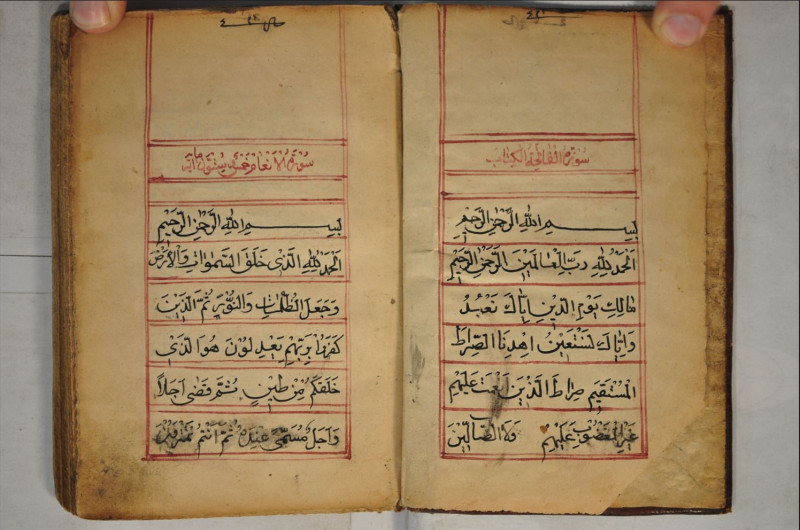 سورة الفاتحة الكتاب
بسم الله الرحمن الرحيم
الحمد لله رب العالمين الرحمن الرحيم
مالك يوم الدين اياك نعبد
واياك نستعين اهدنا الصراط
المستقيم صراط الذين انعمت عليهم
غير المغضوب عليهم ولا الضالين
سورة الانعام
بسم الله الرحمن الرحيم
الحمد لله الذي خلق السموات والارض
وجعل الظلمات والنور ثم الذين
كفروا بربهم يعدلون هو الذي
خلقكم من طين ثم قضى اجلا
واجل مسمى عنده ثم انتم تمترون